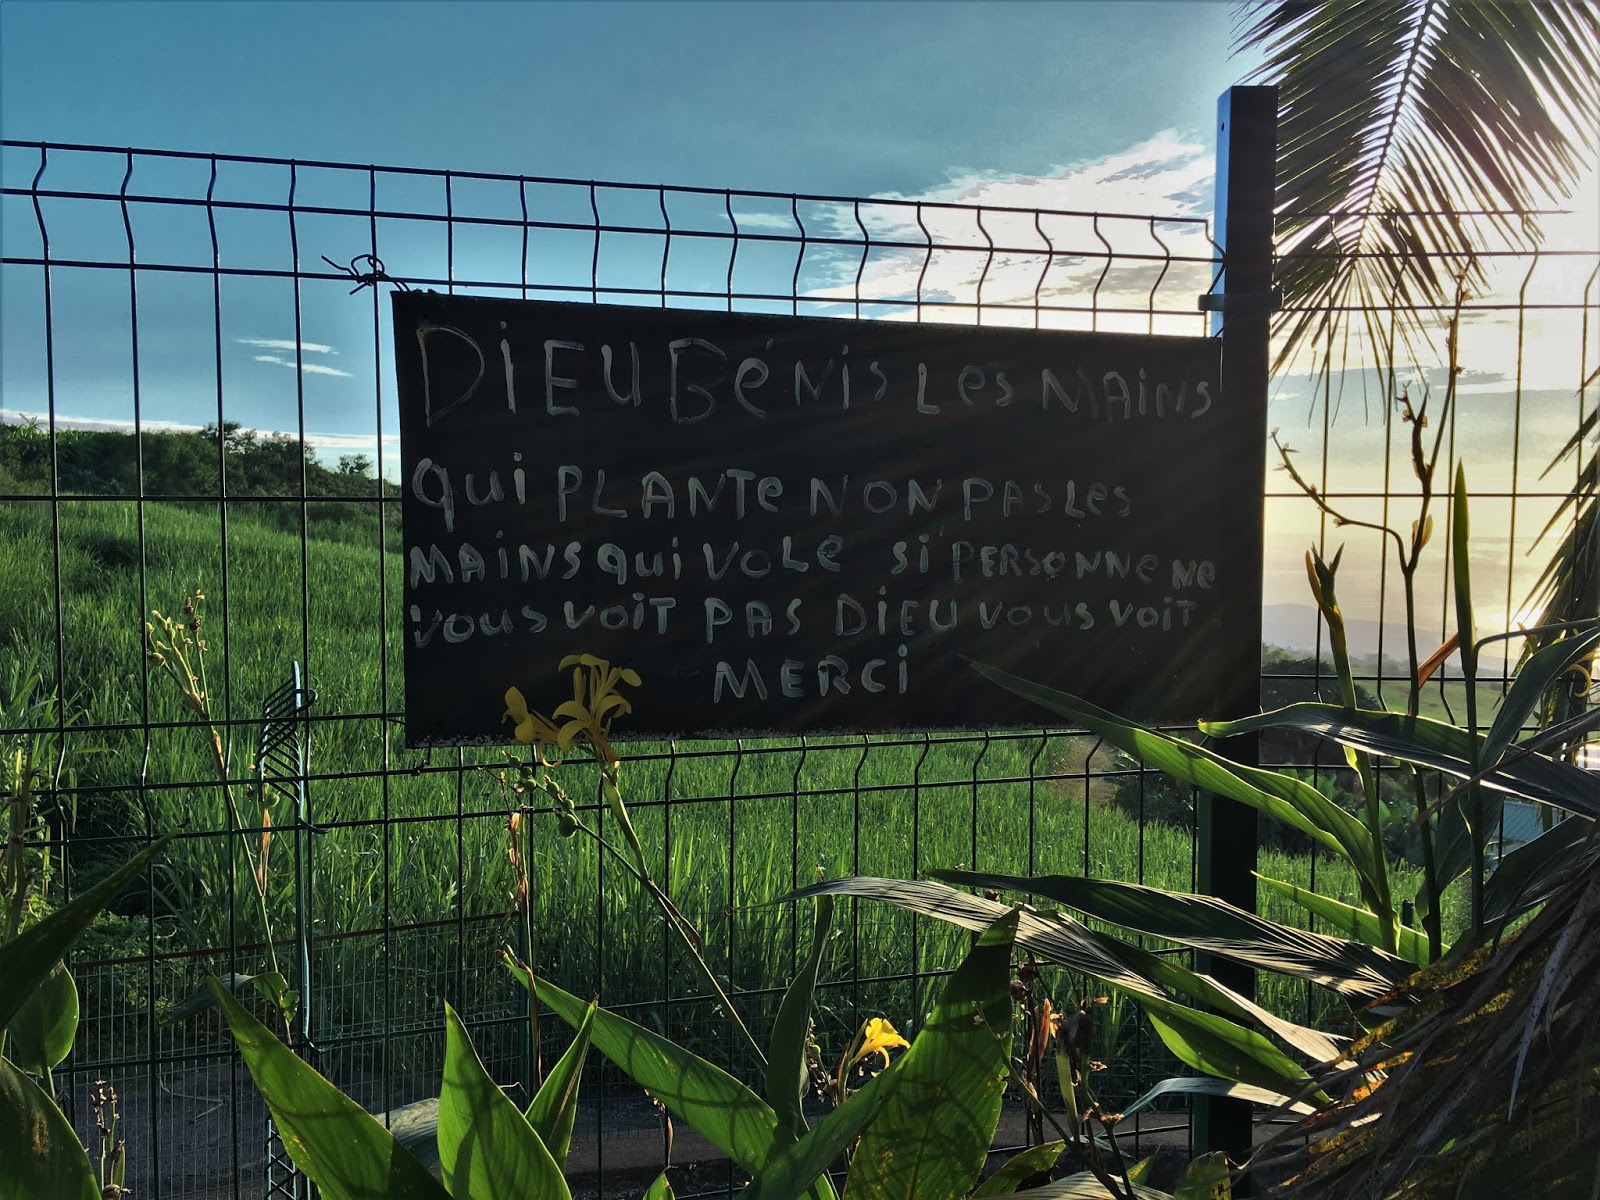 DiEU BéNiS LeS MAiNS
QUi PLANTe NON PAS Les
MAiNS qui VOLe Si PERSONNe Ne
VOUS VOiT PAS DiEU VOUS VOiT
MERCi